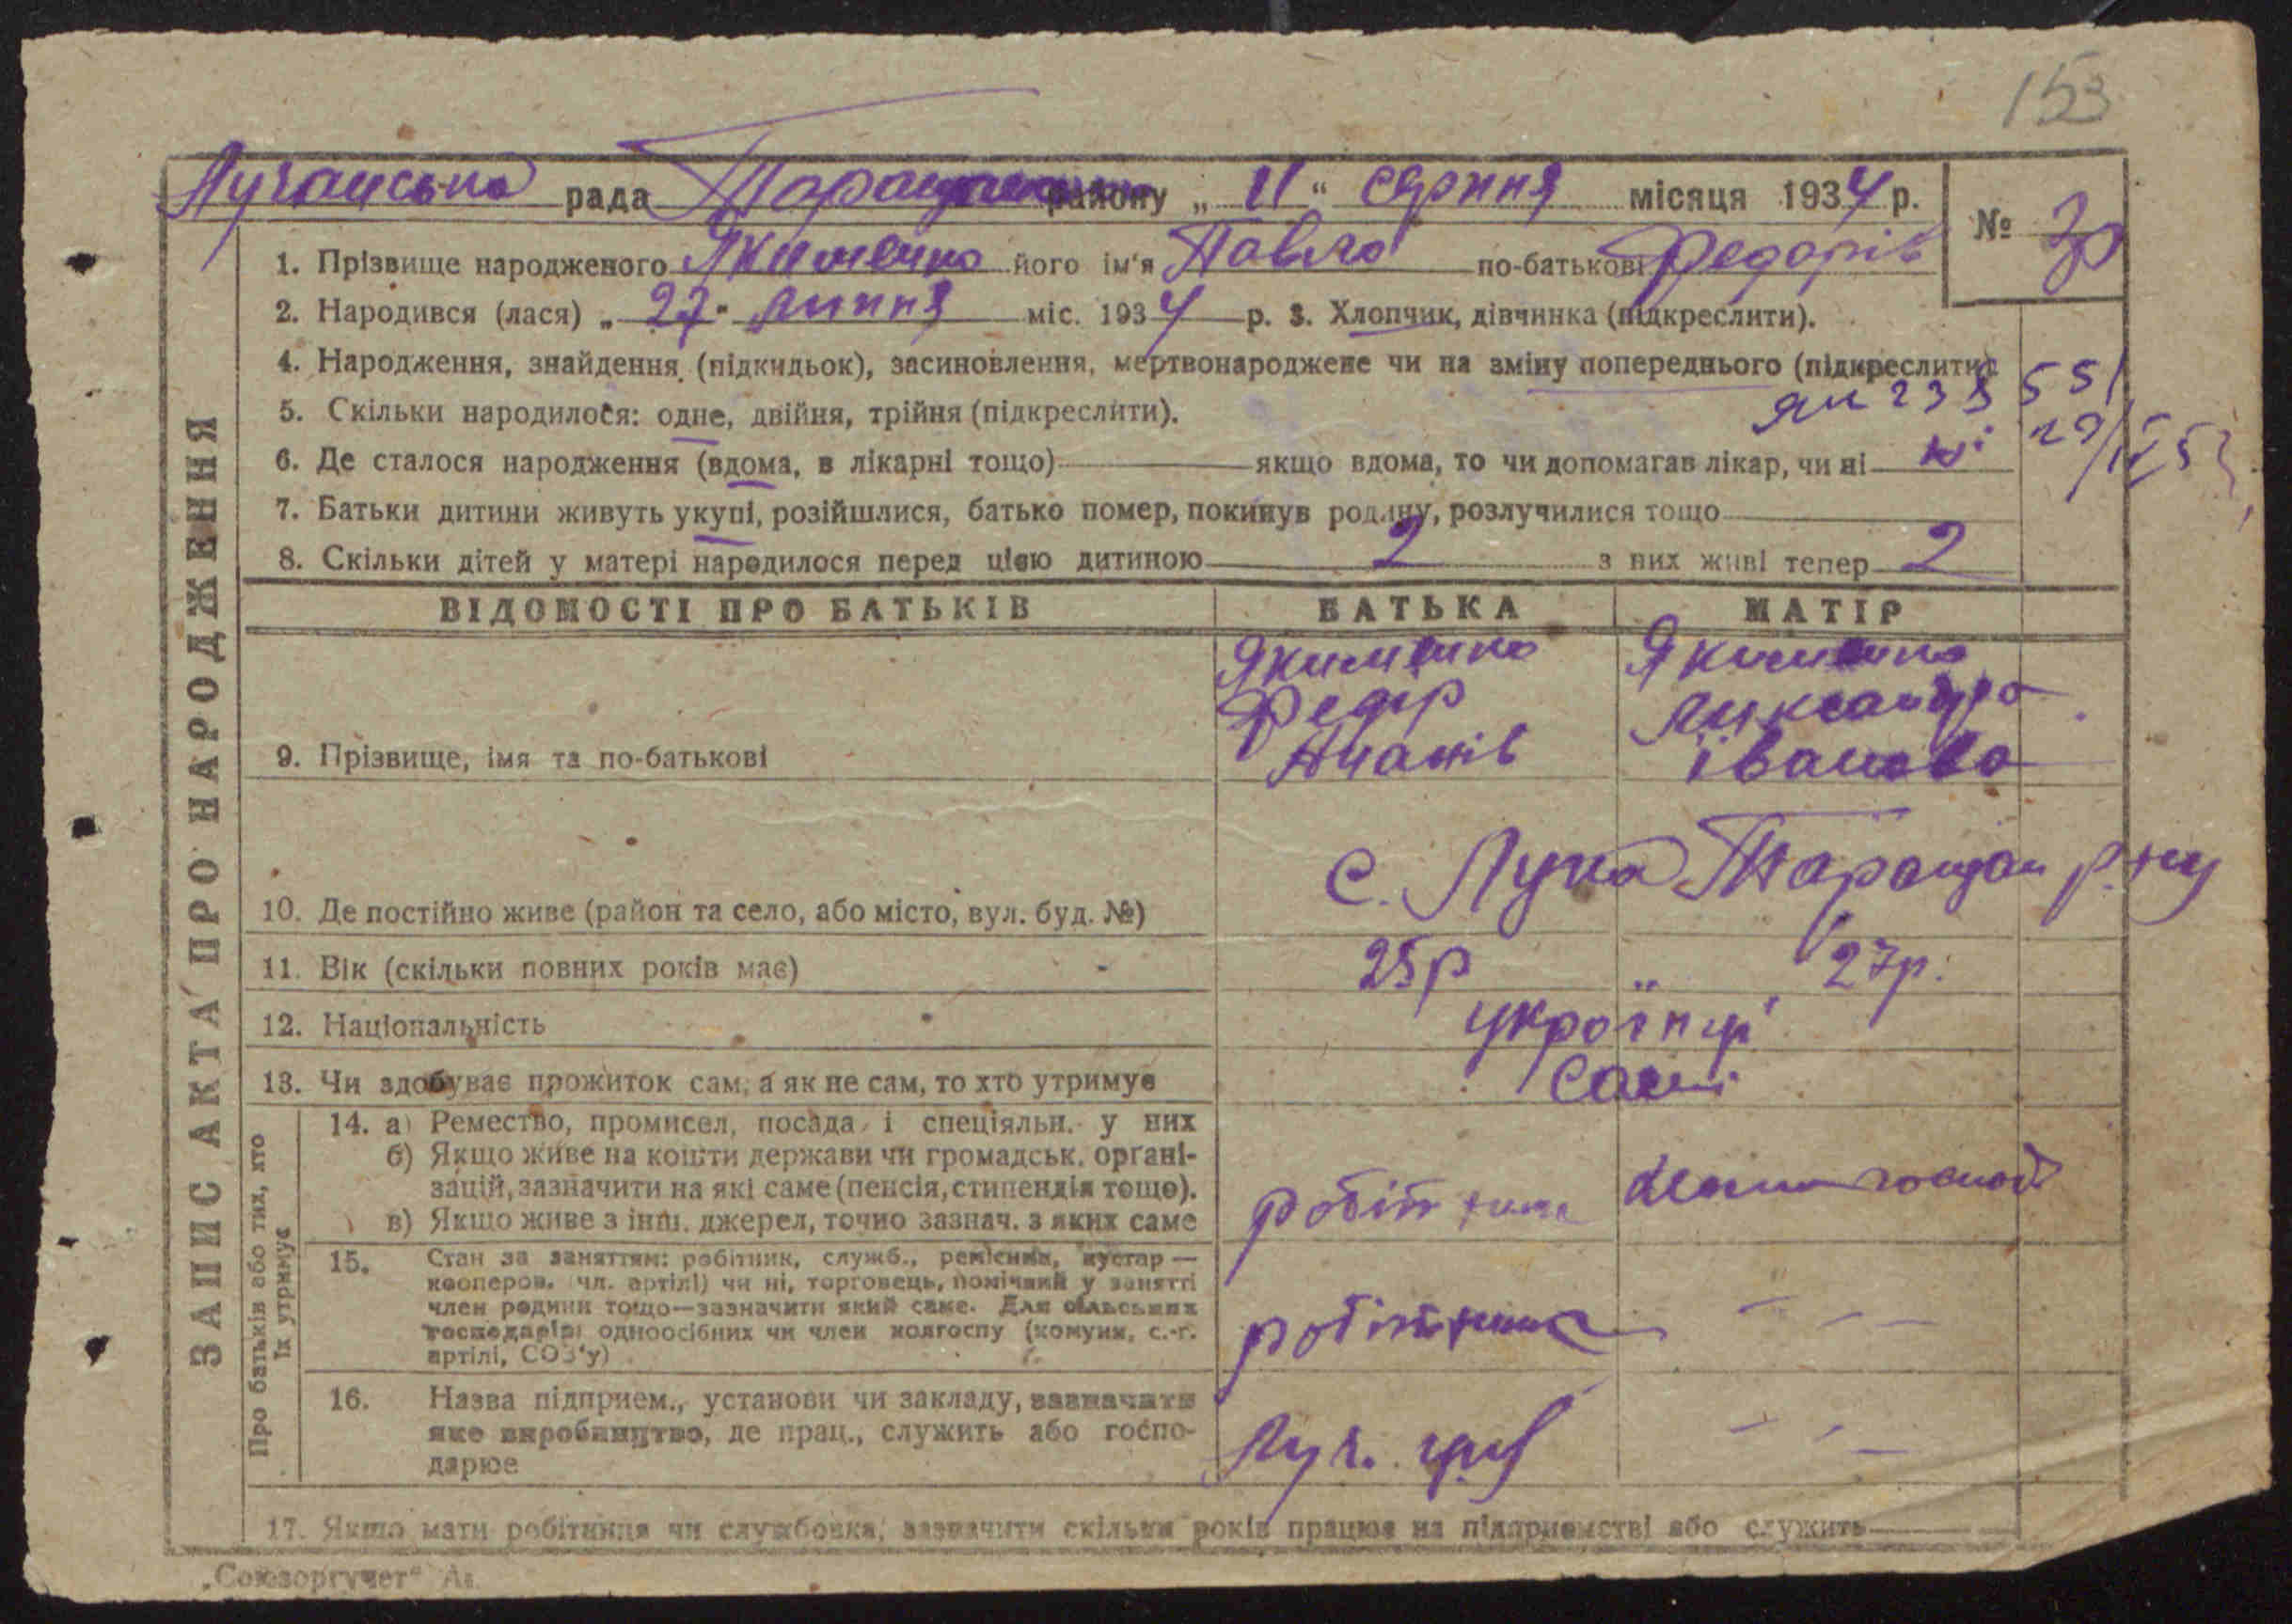 153
Лучанська рада Таращанського району „ 11 “ серпня місяця 1934 р.
№
1. Прізвище народженого Якименко його ім'я Павло по-батькові Федорів
2. Народився (лася) „ 27 " липня міс. 1934 р. 3. Хлопчик, дівчинка (підкреслити).
4. Народження, знайдення (підкидьок), засиновлення, мертвонароджене чи на зміну попереднього (підкреслити).
5. Скільки народилося: одне, двійня, трійня (підкреслити).
6. Де сталося народження (вдома, в лікарні тощо) якщо вдома, то чи допомагав лікар, чи ні ні
7. Батьки дитини живуть укупі, розійшлися, батько помер, покинув родину, розлучилися тощо
8. Скільки дітей у матері народилося перед цією дитиною 2 з них живі тепер 2
ВІДОМОСТІ ПРО БАТЬКІВ БАТЬКА МАТІР
Якименко Якименко
Федір Александра
9. Прізвище, імя та по-батькові Ананів Іванова
10. Де постійно живе (район та село, або місто, вул. буд. №) с. Лука Таращан р-ну
11. Вік (скільки повних років має) 25р " 27р.
12. Національність українці
13. Чи здобуває прожиток сам, а як не сам, то хто утримує самі
14. а) Ремество, промисел, посада і спеціяльн. у них
б) Якщо живе на кошти держави чи громадськ. органі-
зацій, зазначити на які саме (пенсія, стипендія тощо).
в) Якщо живе з інш. джерел, точно зазнач. з яких саме робітник
15. Стан за заняттям: робітник, служб., ремісник, кустар —
кооперов. (чл. артілі) чи ні, торговець, помічний у занятті
член родини тощо—зазначити який саме. Для сільських
господарів: одноосібних чи член колгоспу (комуни, с.-г.
артілі, СОЗ'у) робітник — — —
16. Назва підприєм., установи чи закладу, зазначити
яке виробництво, де прац., служить або госпо-
дарює Луч. — — —
17. Якщо мати робітниця чи службовка, зазначити скільки років працює на підприємстві або служить
ЗАПИС АКТА ПРО НАРОДЖЕННЯ
Про батьків або тих, хто
їх утримує
„Союзоргучет"